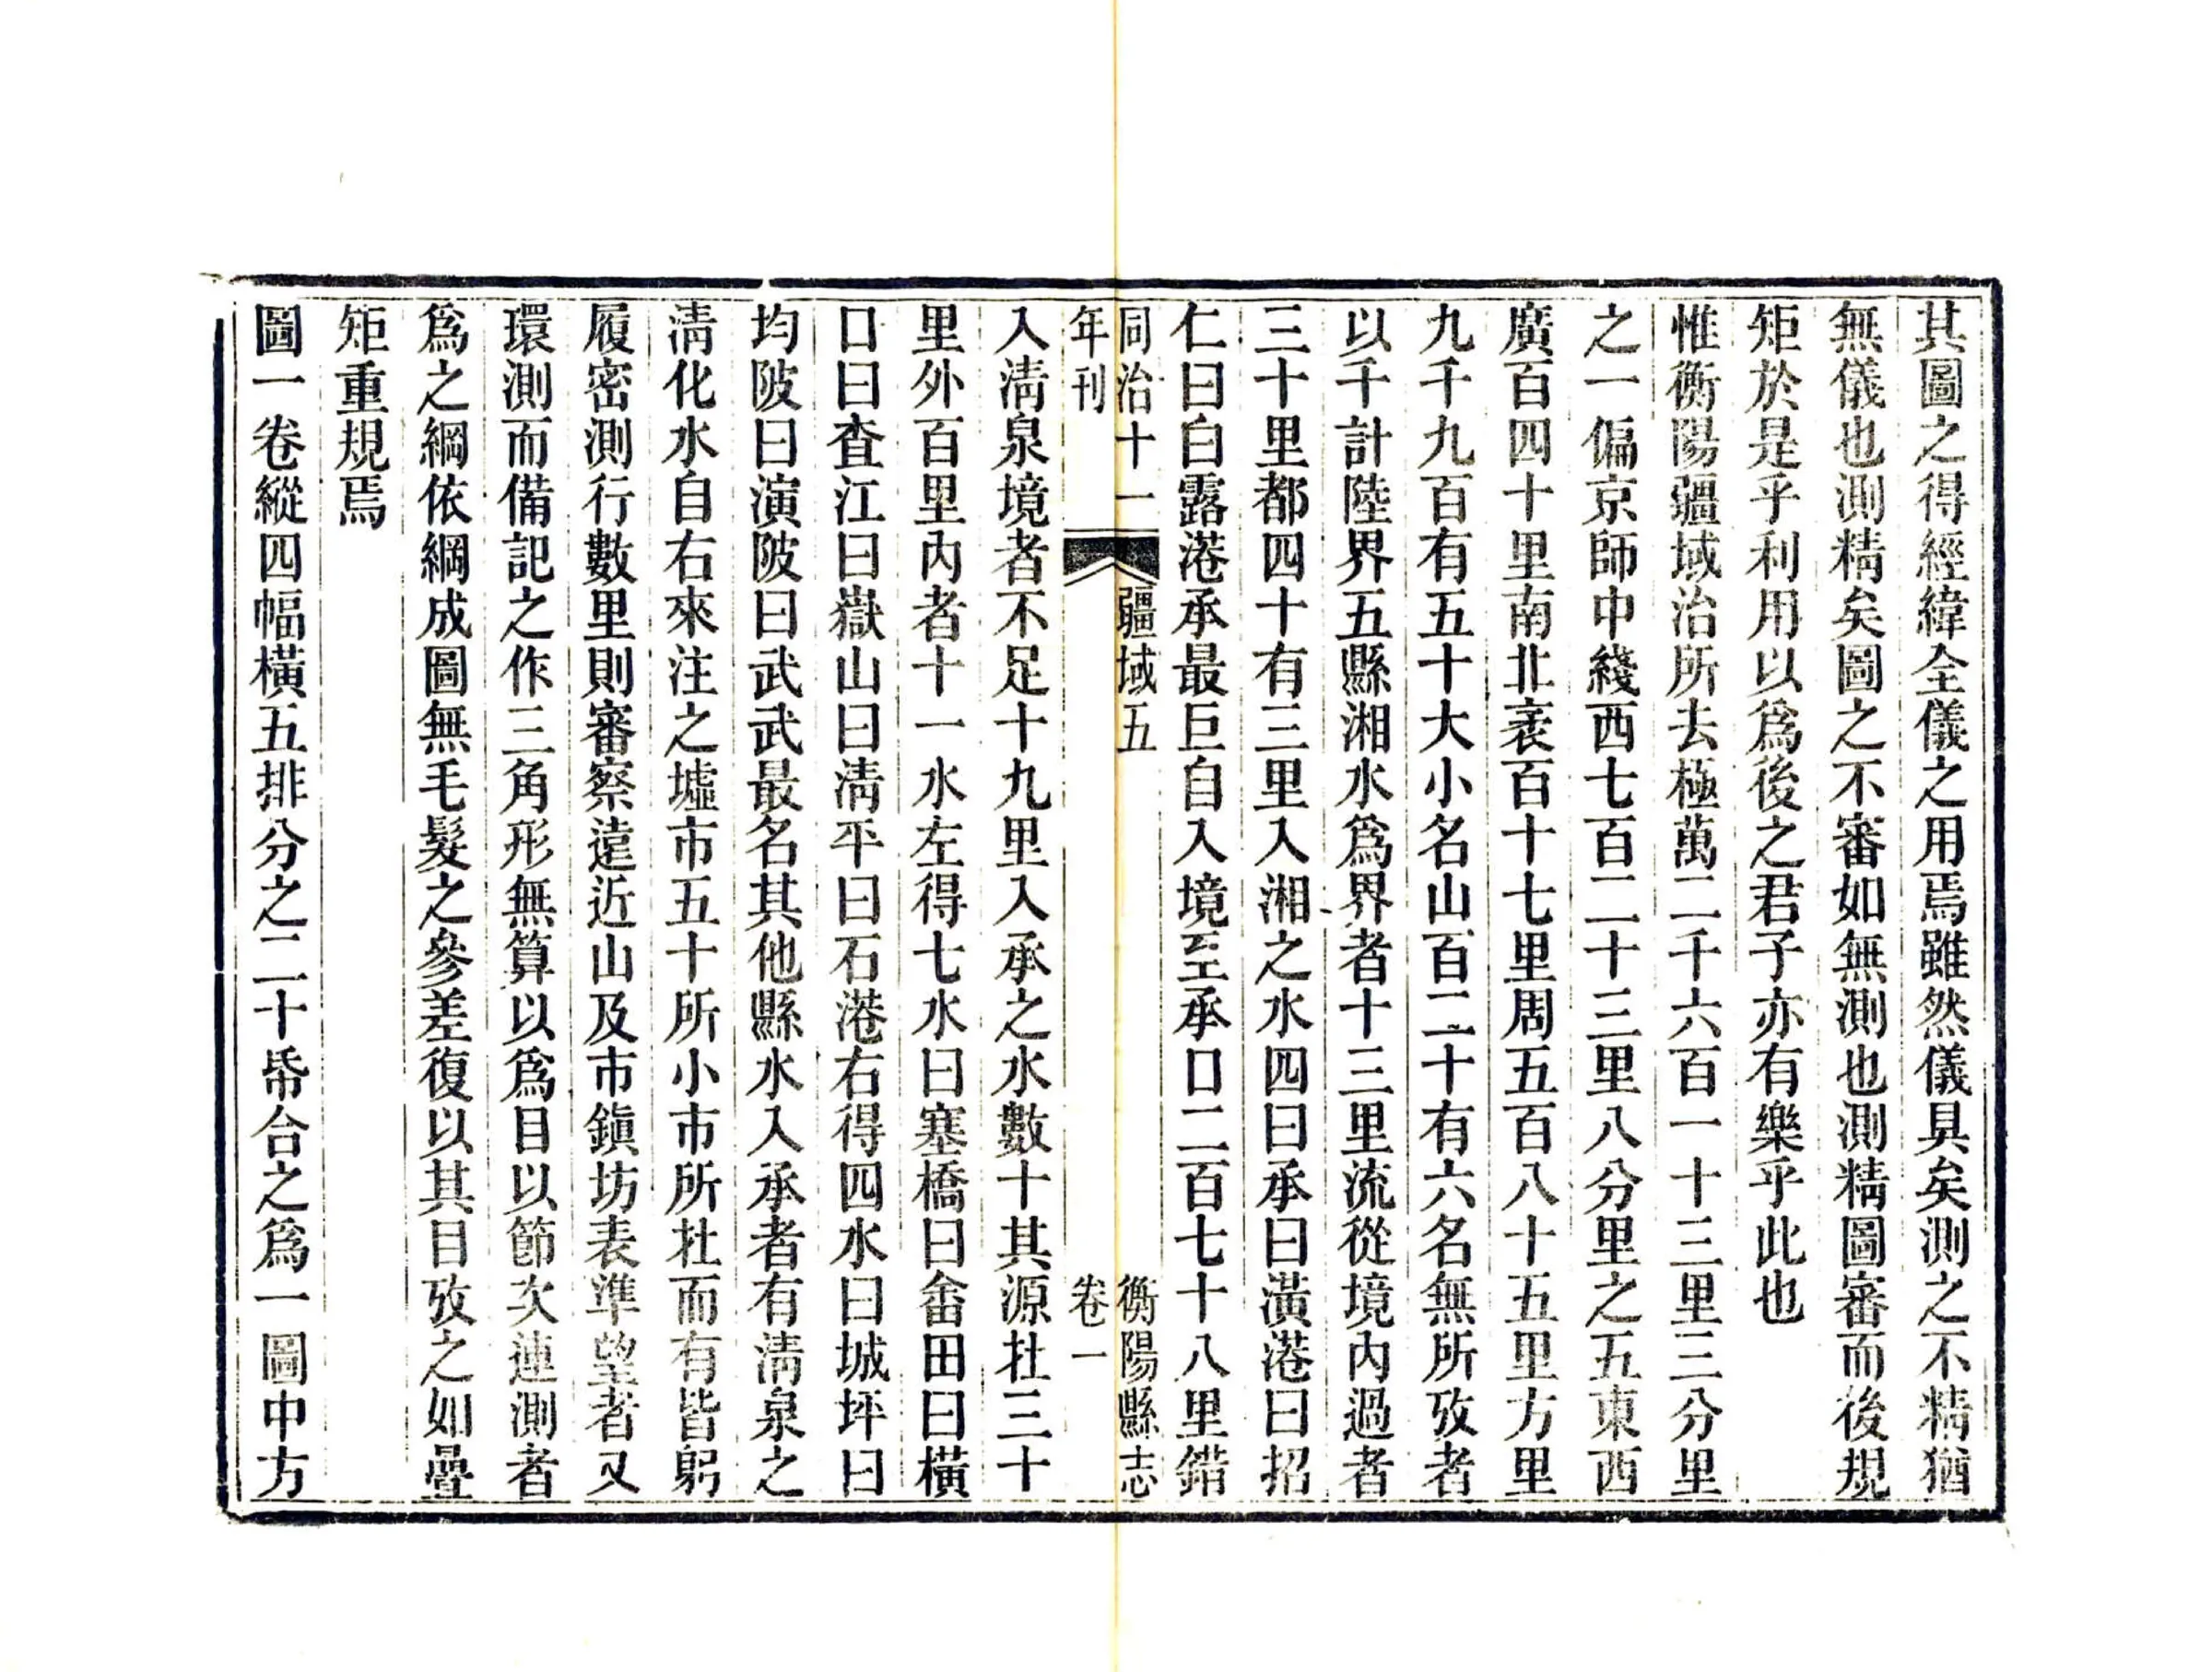 其圖之得經緯全儀之用焉雖然儀具矣測之不精猶
無儀也測精矣圖之不審如無測也測精圖審而後規
矩於是乎利用以爲後之君子亦有樂乎此也
惟衡陽疆域治所去極萬二千六百一十三里三分里
之一偏京師中綫西七百二十三里八分里之五東西
廣百四十里南北袤百十七里周五百八十五里方里
九千九百有五十大小名山百二十有六名無所攷者
以千計陸界五縣湘水爲界者十三里流從境內過者
三十里都四十有三里入湘之水四曰承曰潢港曰招
仁曰白露港承最巨自入境至承口二百七十八里錯
同治十一
年刊
疆域五
衡陽縣志
卷一
入淸泉境者不足十九里入承之水數十其源社三十
里外百里內者十一水左得七水曰塞橋曰畬田曰橫
口曰査江曰嶽山曰淸平曰石港右得四水曰城坪曰
均陂曰演陂曰武武最名其他縣水入承者有淸泉之
淸化水自右來注之墟市五十所小市所社而有皆躬
履密測行數里則審察遠近山及市鎭坊表準望者又
環測而備記之作三角形無算以爲目以節次連測者
爲之綱依綱成圖無毛髮之參差復以其目攷之如疊
矩重規焉
圖一卷縱四幅橫五排分之二十帋合之爲一圖中方